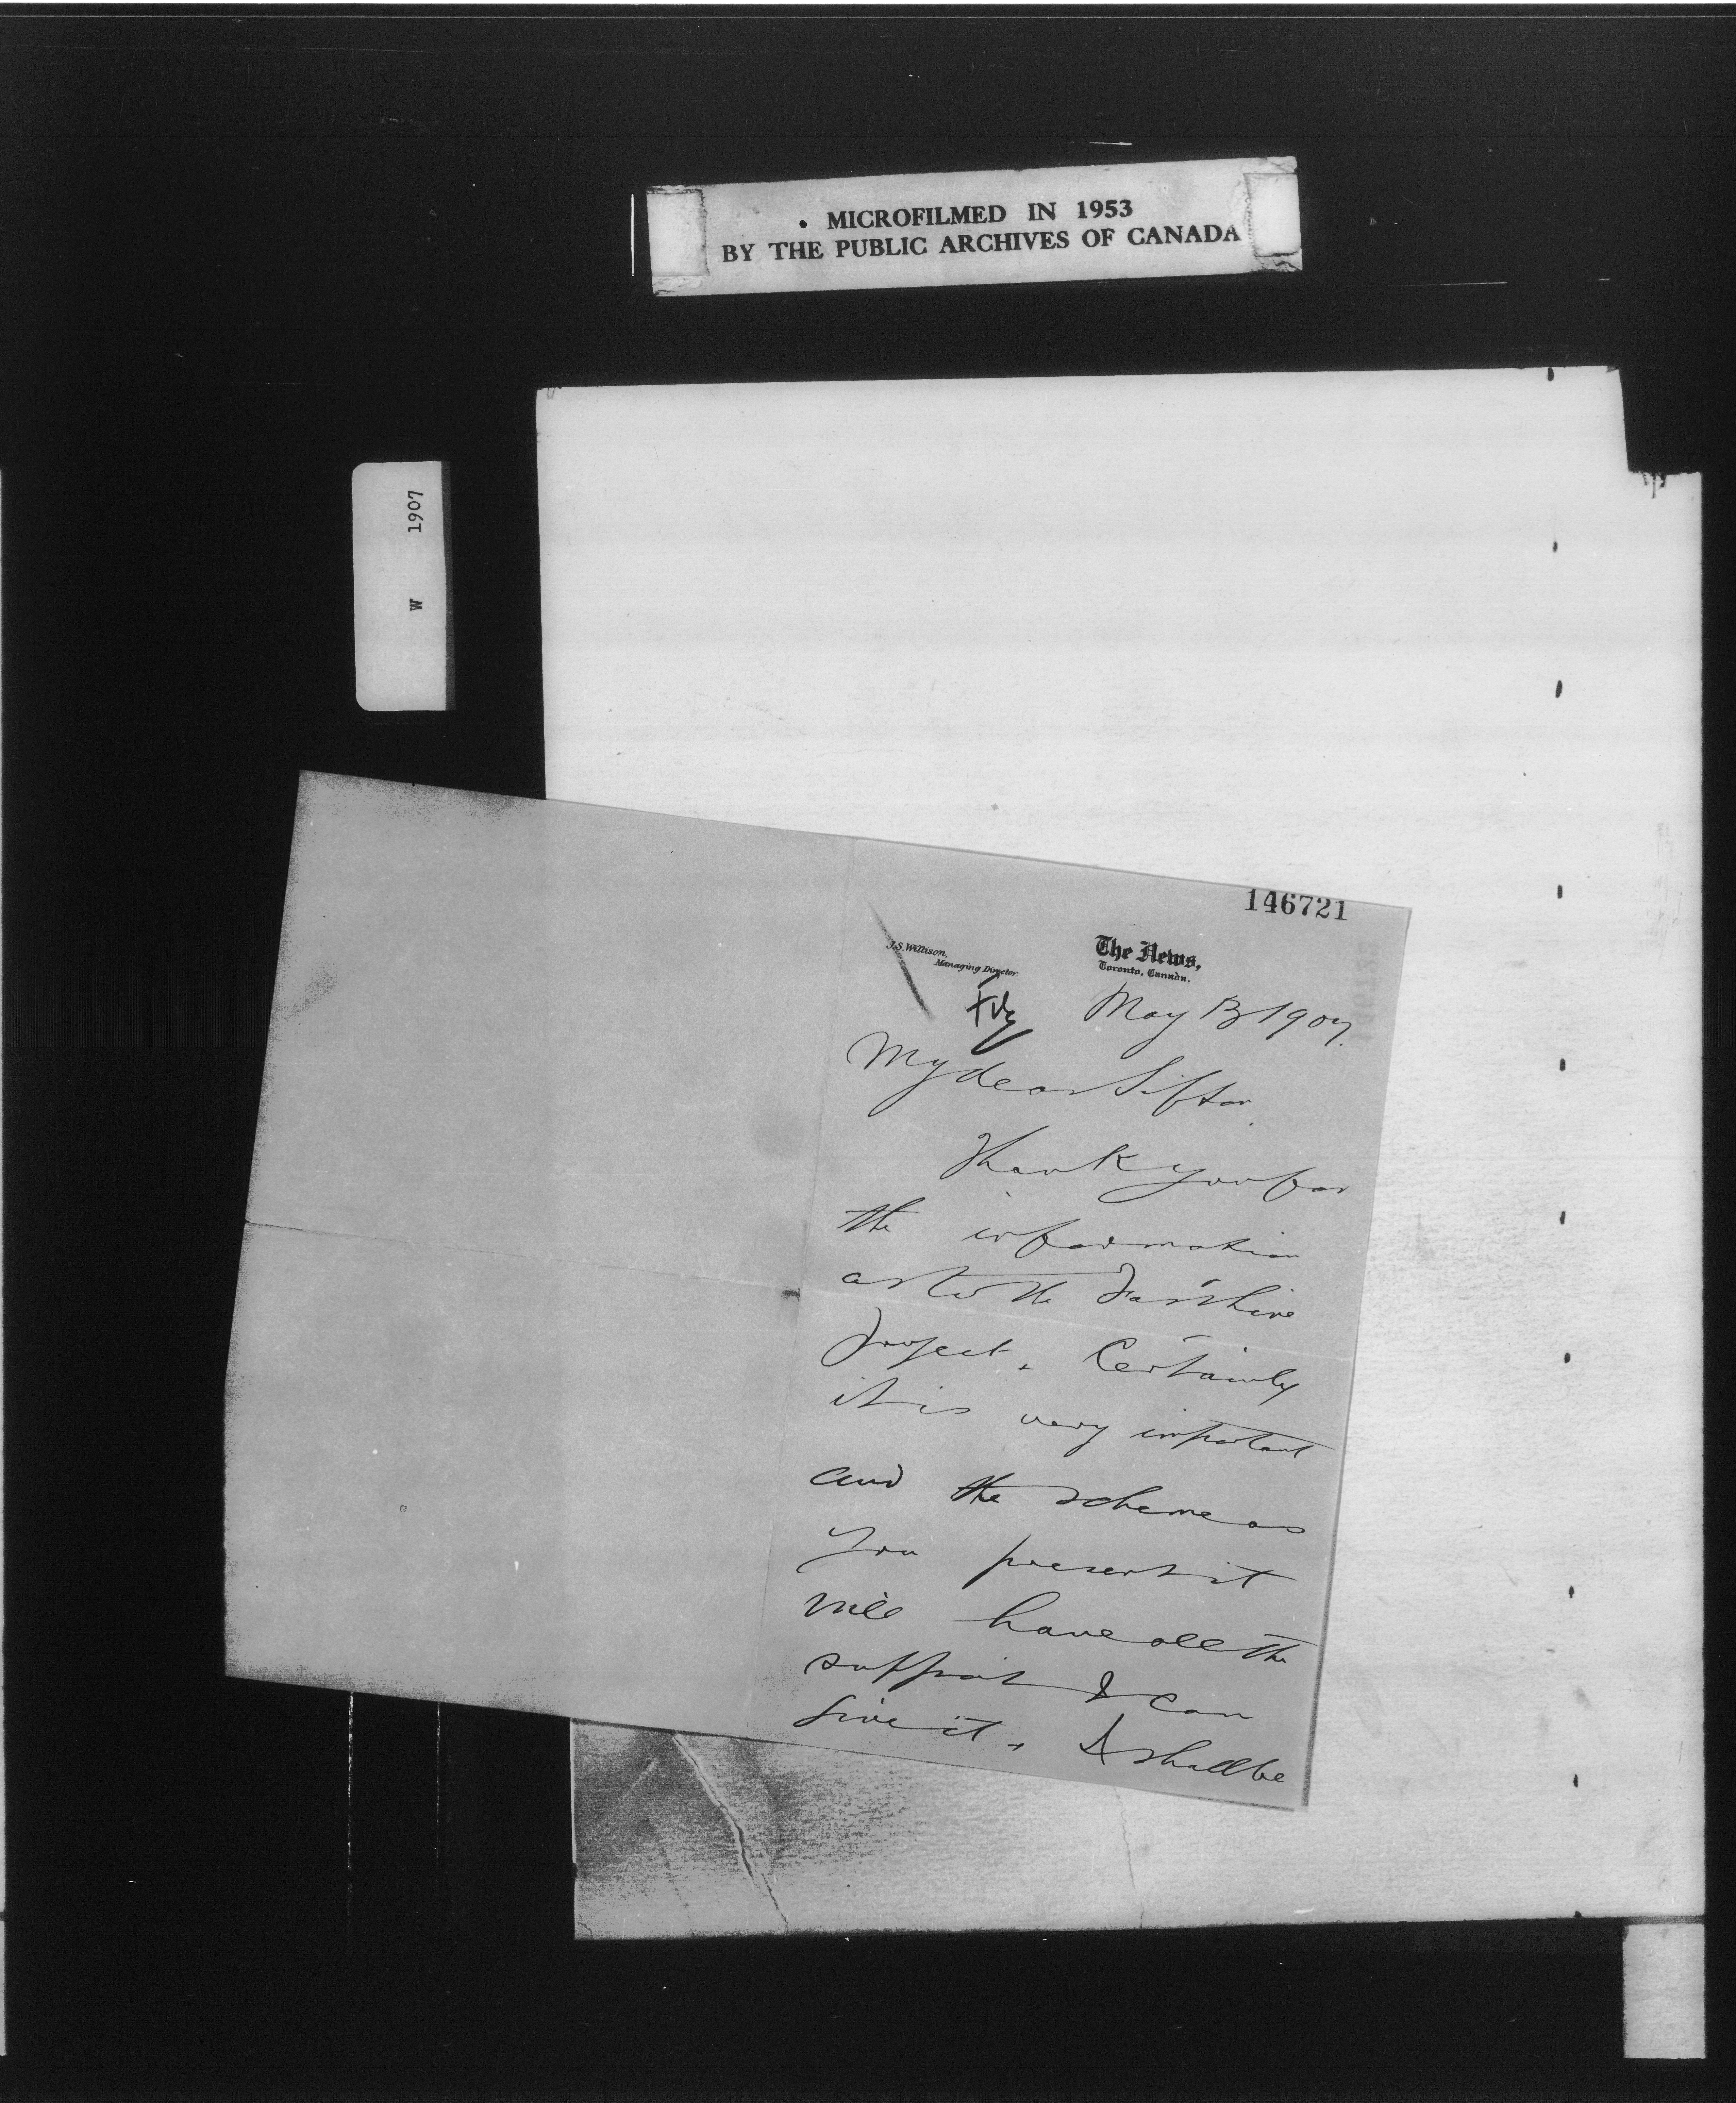 • MICROFILMED IN 1953
BY THE PUBLIC ARCHIVES OF CANADA
W 1907
146721
J.S. Willison,
Managing Director.
The News,
Toronto, Canada.
May 13 1907.
My dear Sifton.
Thank you for
the information
as to the Fast line
project. Certainly
it is very important
and the scheme as
you present it
will have all the
support I can
give it. I shall be